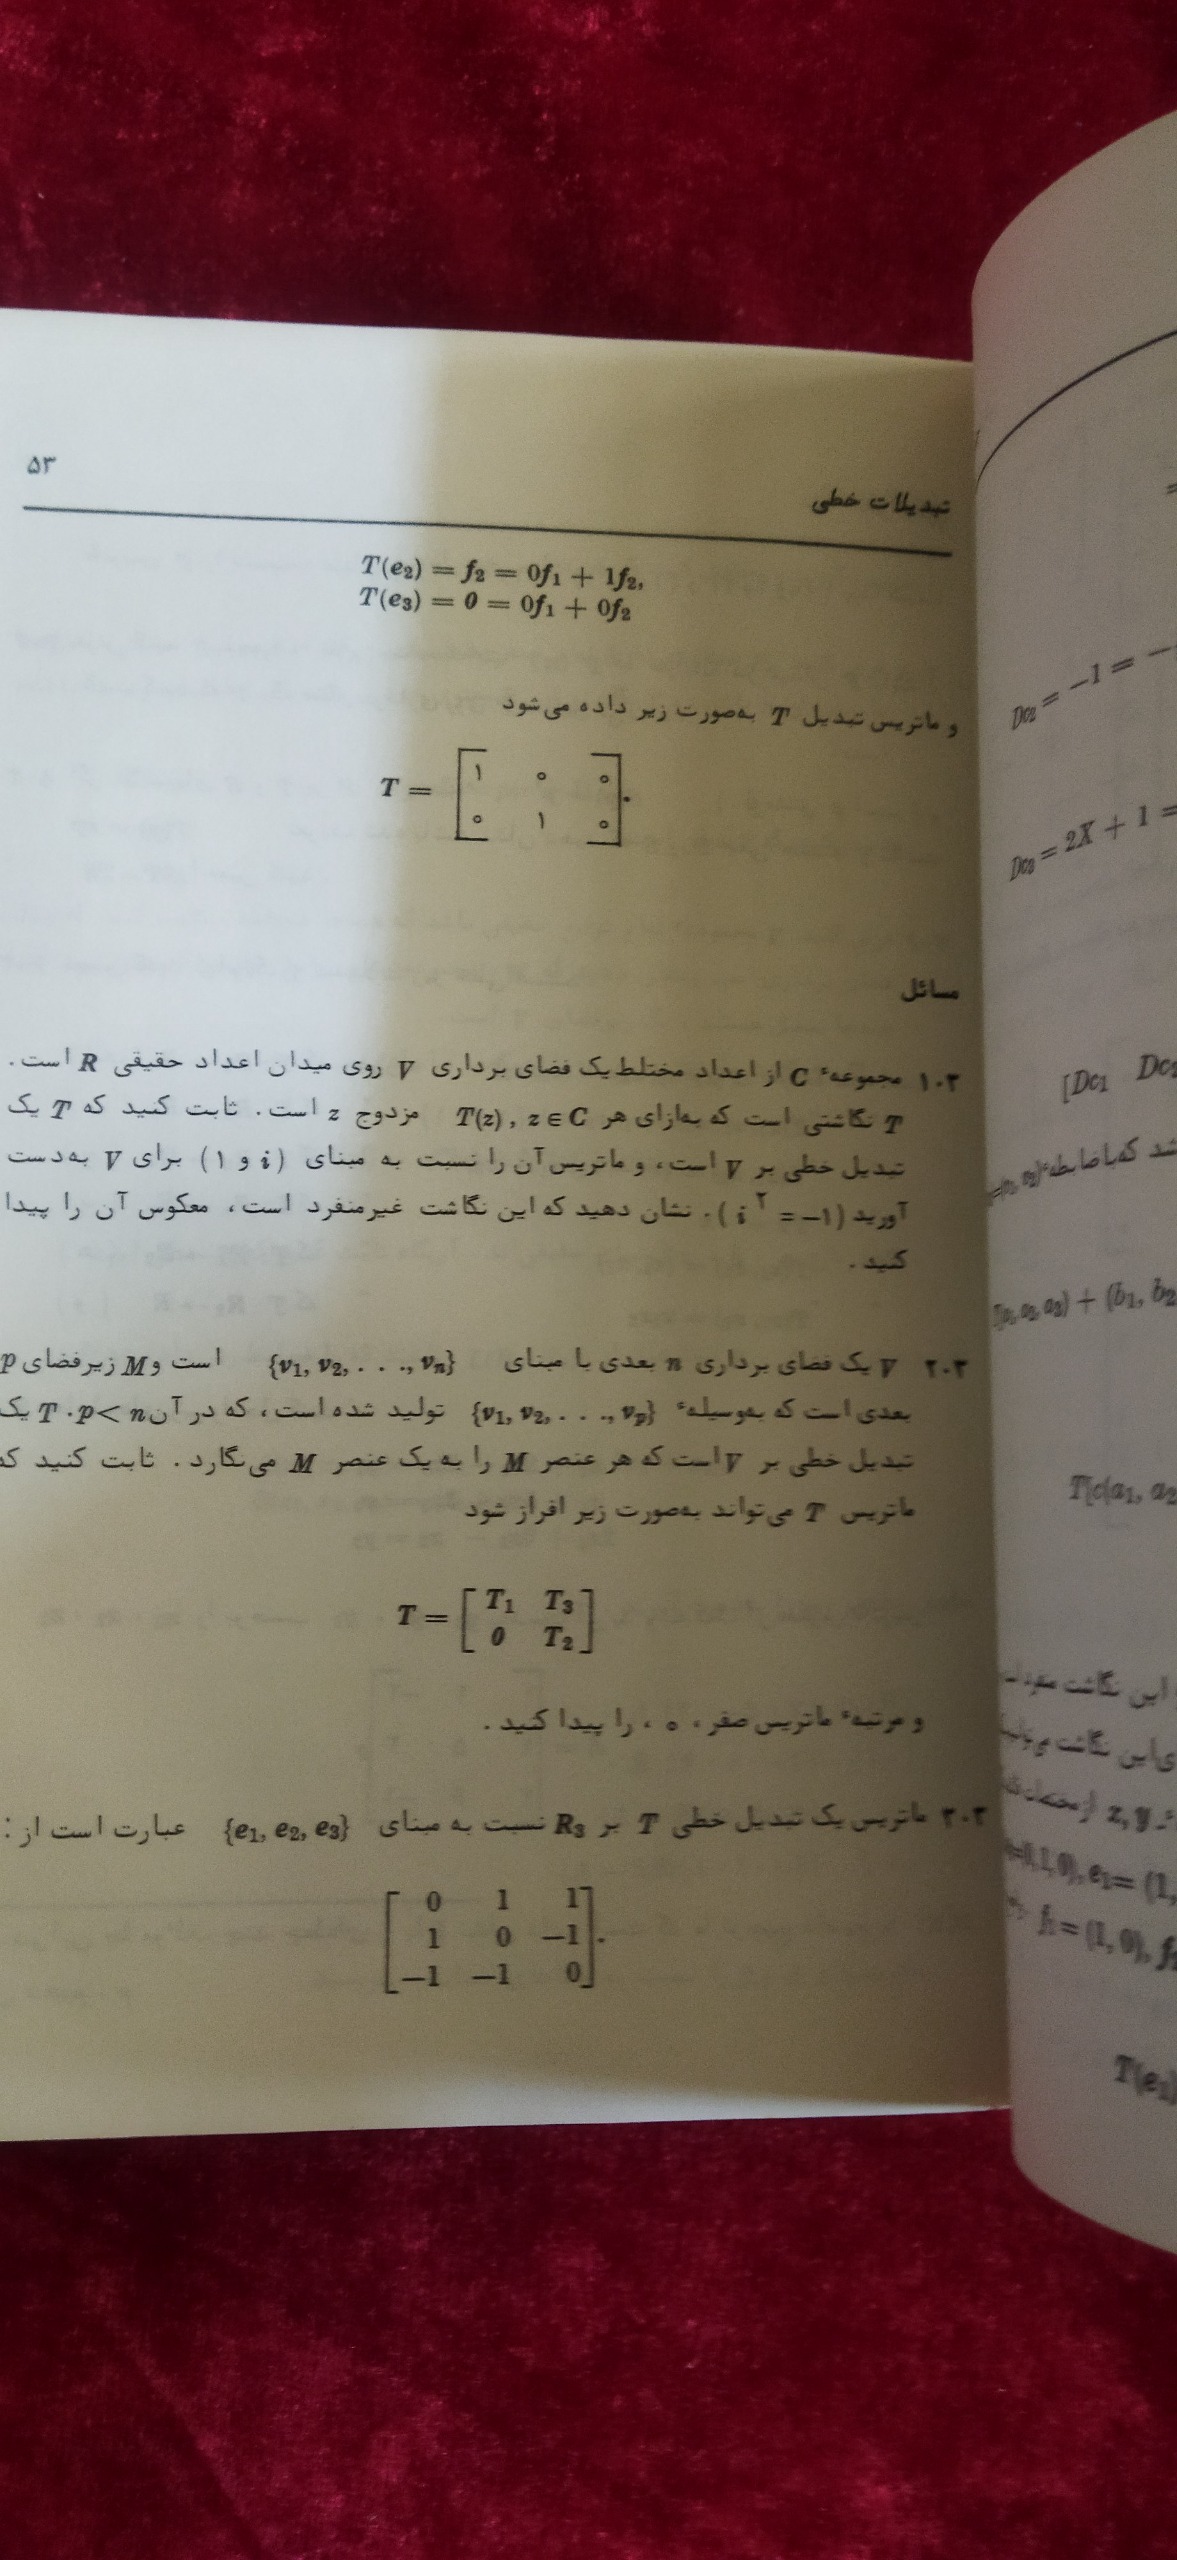 ۵۳
تبدیلات خطی
T(e₂) = f₂ = 0f₁ + 1f₂,
T(e₃) = 0 = 0f₁ + 0f₂
و ماتریس تبدیل T به‌صورت زیر داده می‌شود
T = [ ۱ ۰ ۰
۰ ۱ ۰ ].
مسائل
۱۰۳ مجموعهٔ C از اعداد مختلط یک فضای برداری V روی میدان اعداد حقیقی R است.
T نگاشتی است که به‌ازای هر T(z), z ∈ C مزدوج z است. ثابت کنید که T یک
تبدیل خطی بر V است، و ماتریس آن را نسبت به مبنای (i و ۱) برای V به‌دست
آورید (i² = −۱). نشان دهید که این نگاشت غیرمنفرد است، معکوس آن را پیدا
کنید.
۲۰۳ V یک فضای برداری n بعدی با مبنای {v₁, v₂, . . ., vₙ} است و M زیرفضای p
بعدی است که به‌وسیلهٔ {v₁, v₂, . . ., vₚ} تولید شده است، که در آن p < n. T یک
تبدیل خطی بر V است که هر عنصر M را به یک عنصر M می‌نگارد. ثابت کنید که
ماتریس T می‌تواند به‌صورت زیر افراز شود
T = [ T₁ T₃
0 T₂ ]
و مرتبهٔ ماتریس صفر، ۰، را پیدا کنید.
۳۰۳ ماتریس یک تبدیل خطی T بر R₃ نسبت به مبنای {e₁, e₂, e₃} عبارت است از:
[ 0 1 1
1 0 −1
−1 −1 0 ].
Dc₂ = −1 = −
Dc₃ = 2X + 1 =
[Dc₁ Dc₂
شد که با ضابطهٔ
a₃) + (b₁, b₂
T[c(a₁, a₂
این نگاشت
این نگاشت
z, y
e₁ = (1,
f₁ = (1, 0), f₂
T(e₁)